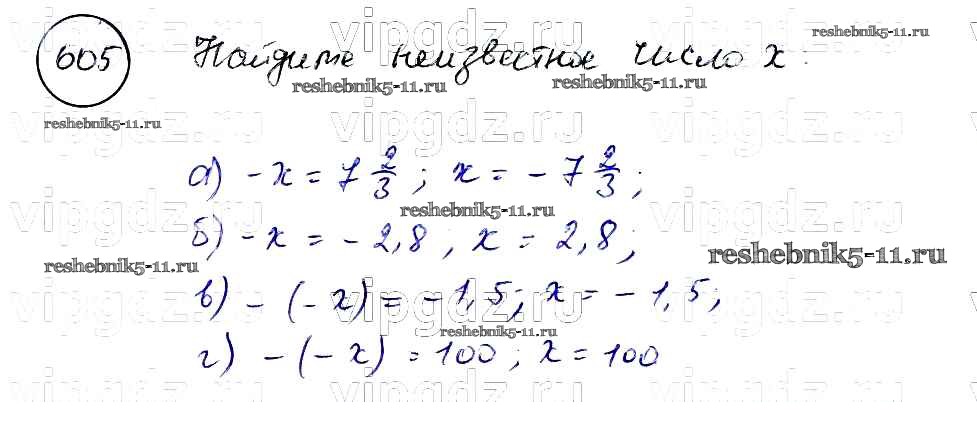 vipgdz.ru vipgdz.ru vipgdz.ru
605 Найдите неизвестное число x: reshebnik5-11.ru
reshebnik5-11.ru reshebnik5-11.ru
reshebnik5-11.ru
vipgdz.ru vipgdz.ru vipgdz.ru
а) -x = 7 2/3 ; x = - 7 2/3 ;
vipgdz.ru vipgdz.ru vipgdz.ru
reshebnik5-11.ru
б) -x = - 2,8 ; x = 2,8 ;
reshebnik5-11.ru reshebnik5-11.ru
в) - (-x) = -1,5; x = - 1,5;
vipgdz.ru vipgdz.ru vipgdz.ru
reshebnik5-11.ru
г) - (-x) = 100 ; x = 100
vipgdz.ru vipgdz.ru vipgdz.ru